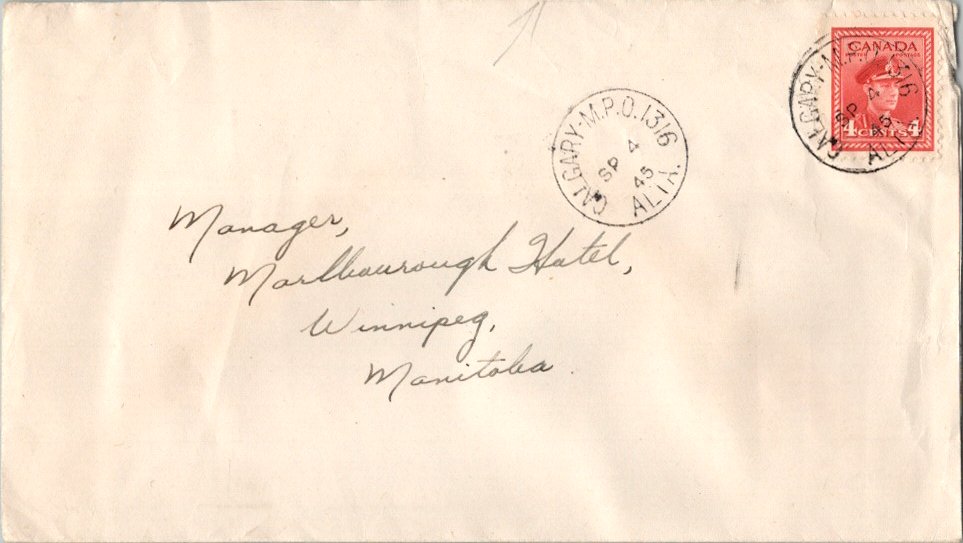 CANADA
POSTES POSTAGE
4 CENTS 4
CALGARY-M.P.O. 1316
SP 4
45
ALTA.
CALGARY-M.P.O. 1316
SP 4
45
ALTA.
Manager,
Marlbourough Hotel,
Winnipeg,
Manitoba.